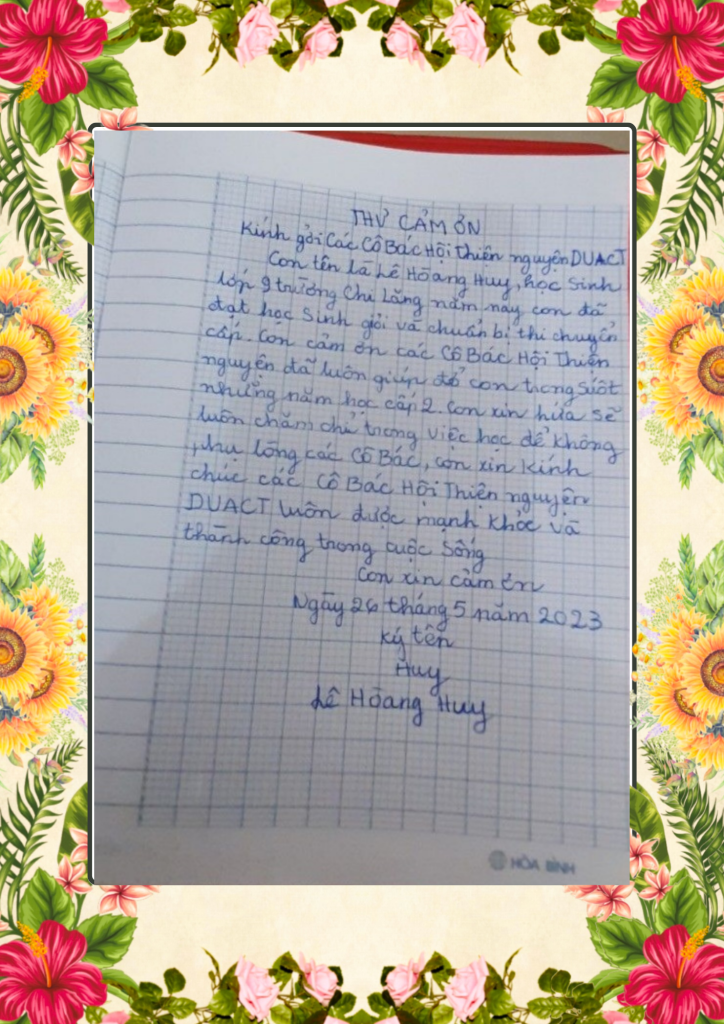 THƯ CẢM ƠN
Kính gởi Các Cô Bác Hội Thiện nguyện DUACT
Con tên là Lê Hoàng Huy, học sinh
lớp 9 trường Chi Lăng năm nay con đã
đạt học sinh giỏi và chuẩn bị thi chuyển
cấp. Con cảm ơn các Cô Bác Hội Thiện
nguyện đã luôn giúp đỡ con trong suốt
những năm học cấp 2. Con xin hứa sẽ
luôn chăm chỉ trong việc học để không
phụ lòng các Cô Bác, con xin kính
chúc các Cô Bác Hội Thiện nguyện
DUACT luôn được mạnh khỏe và
thành công trong cuộc sống
Con xin cảm ơn
Ngày 26 tháng 5 năm 2023
Ký tên
Huy
Lê Hoàng Huy
HÒA BÌNH